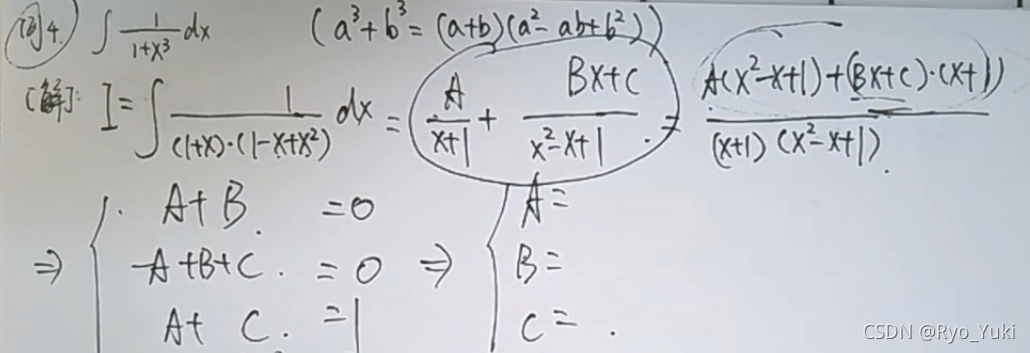 例4. ∫ 1/(1+x³) dx (a³+b³=(a+b)(a²-ab+b²))
[解]: I = ∫ 1/((1+x)·(1-x+x²)) dx = A/(x+1) + (Bx+C)/(x²-x+1) = (A(x²-x+1)+(Bx+C)·(x+1))/((x+1)(x²-x+1))
⇒ { A+B = 0
-A+B+C = 0
A+ C = 1
⇒ { A=
B=
C=
CSDN @Ryo_Yuki